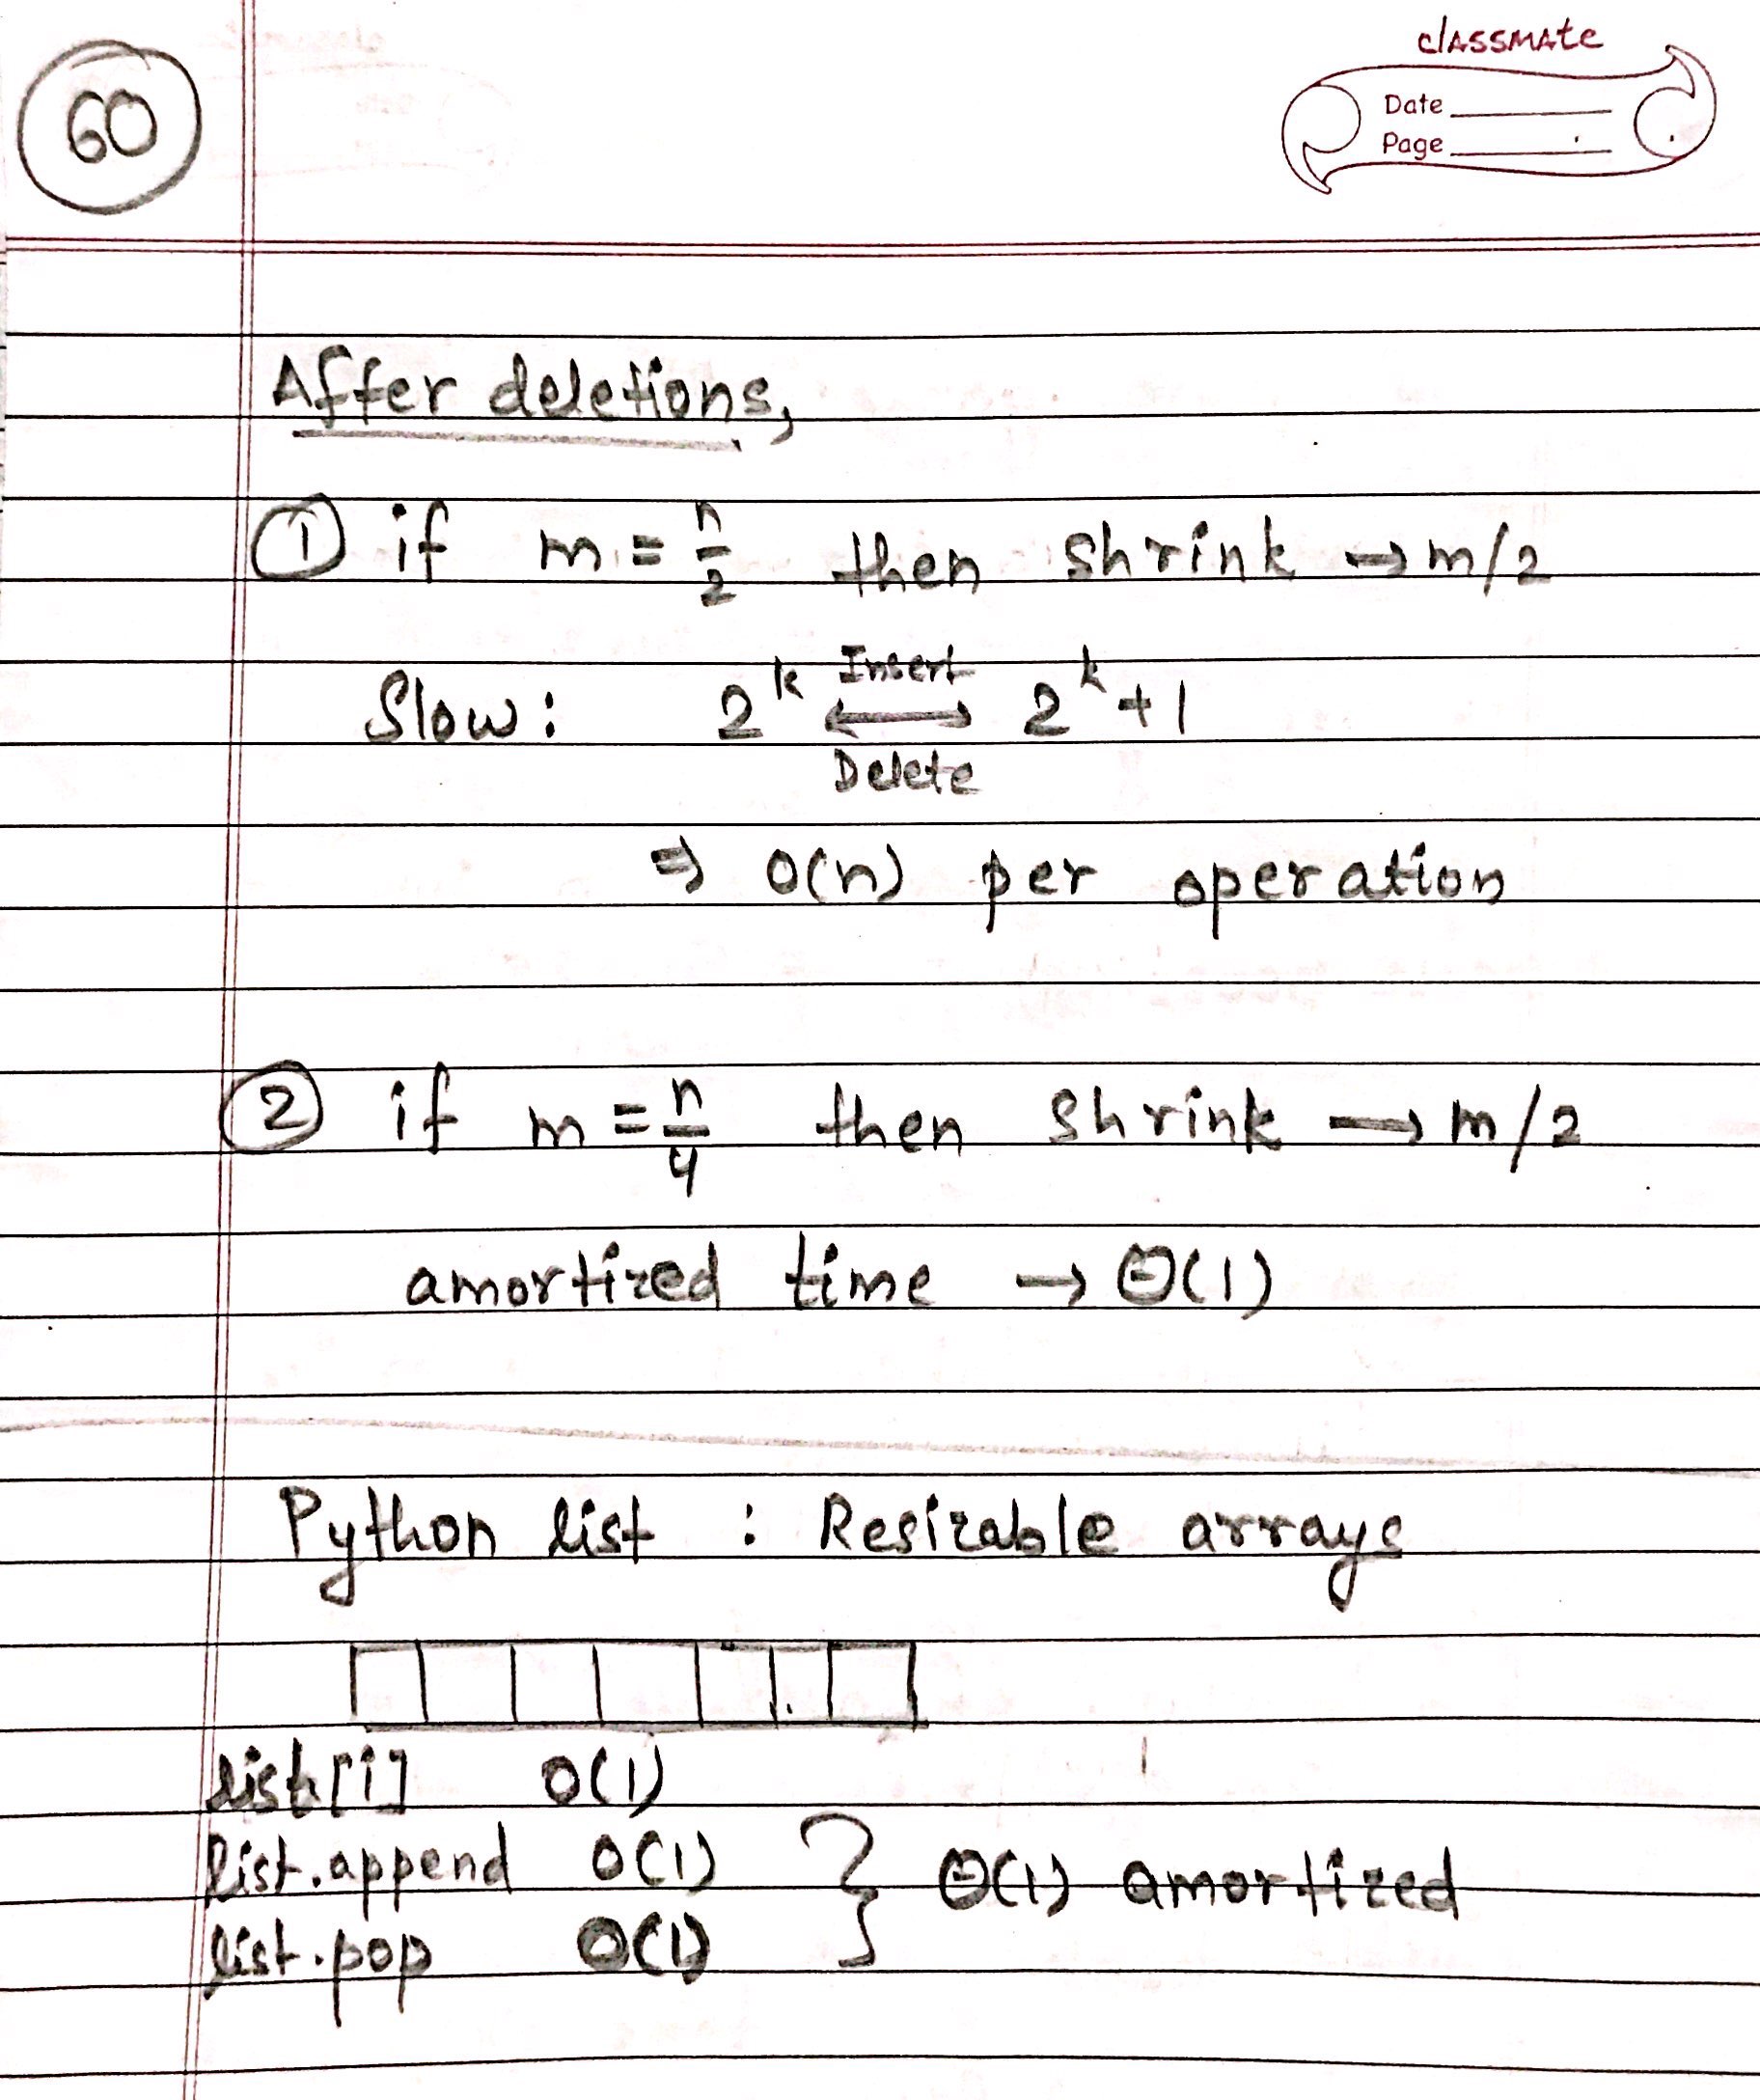 60
classmate
Date
Page
After deletions,
① if m = n/2 then shrink → m/2
Slow : 2^k Insert ⟷ Delete 2^k + 1
⇒ O(n) per operation
② if m = n/4 then shrink → m/2
amortized time → Θ(1)
Python list : Resizable arrays
list[i] O(1)
list.append O(1) } Θ(1) amortized
list.pop O(1)